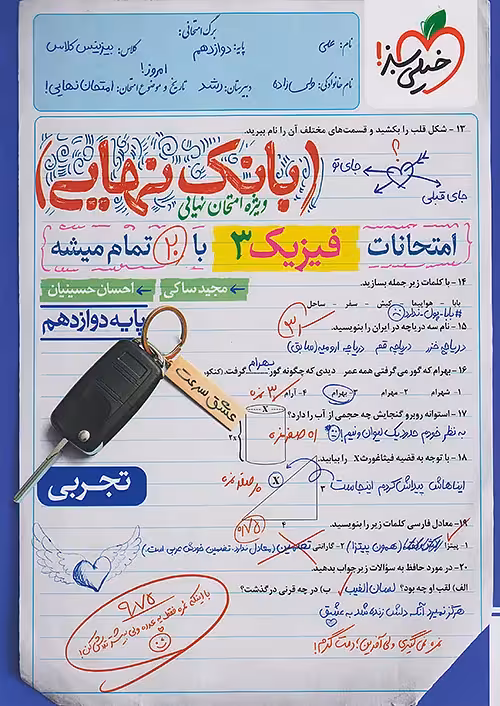 خیلی سبز!
برگ امتحانی:
نام: علمی
پایه: دوازدهم
کلاس: بیزینس کلاس
نام خانوادگی: والی‌زاده
دبیرستان: رشد
تاریخ و موضوع امتحان: امتحان نهایی!
امروز!
۱۳ - شکل قلب را بکشید و قسمت‌های مختلف آن را نام ببرید.
؟
جای تو
جای قبلی
(بانک نهایی)
ویژه امتحان نهایی
امتحانات فیزیک ۳ با ۲۰ تمام میشه
مجید ساکی
احسان حسینیان
پایه دوازدهم
۱۴ - با کلمات زیر جمله بسازید.
بابا - هواپیما - کیش - سفر - ساحل
#بابا-پول-ندارد
۱۵ - نام سه دریاچه در ایران را بنویسید.
دریاچه خزر دریاچه قم دریاچه ارومیه (سابق)
۱۶ - بهرام که گور می‌گرفتی همه عمر دیدی که چگونه گور بهرام گرفت. (کنکور
۱- شهرام ۲- مهرام ۳- بهرام ۴- آرام
۱۷ - استوانه روبرو گنجایش چه حجمی از آب را دارد؟
به نظر خودم حدود یک لیوان و نیم!
X
۲x
۱۸ - با توجه به قضیه فیثاغورث X را بیابید.
ایناهاش پیداش کردم اینجاست
X
۳
۴
عشق سرعت
تجربی
۱۹- معادل فارسی کلمات زیر را بنویسید.
۱- پیتزا (همون پیتزا) ۲- گارانتی تضمین (معادل ندارد. تضمین خودش عربی است.)
۲۰- در مورد حافظ به سؤالات زیر جواب بدهید.
الف) لقب او چه بود؟ لسان الغیب ب) در چه قرنی درگذشت؟
هرگز نمیرد آنکه دلش زنده شد به عشق
نمره نمی‌گیری ولی آفرین، دمت گرم!
۹/۷۵